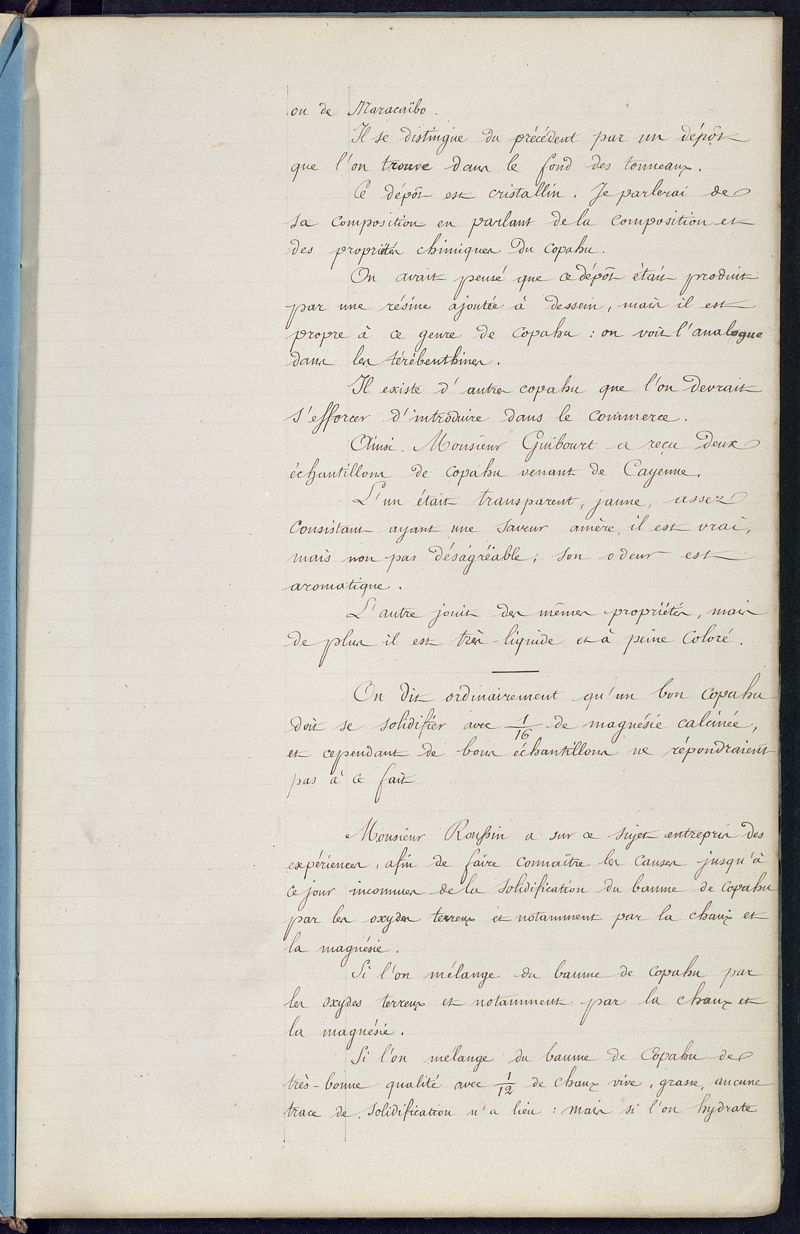 ou de Maracaïbo.
Il se distingue du précédent par un dépôt
que l'on trouve dans le fond des tonneaux.
Ce dépôt est cristallin. Je parlerai de
sa composition en parlant de la composition et
des propriétés chimiques du copahu.
On avait pensé que ce dépôt était produit
par une résine ajoutée à dessein, mais il est
propre à ce genre de copahu : on voit l'analogue
dans les térébenthines.
Il existe d'autres copahu que l'on devrait
s'efforcer d'introduire dans le commerce.
Ainsi. Monsieur Guibourt a reçu deux
échantillons de copahu venant de Cayenne.
L'un était transparent, jaune, assez
consistant ayant une saveur amère, il est vrai,
mais non pas désagréable, son odeur est
aromatique.
L'autre jouit des mêmes propriétés, mais
de plus il est très-liquide et à peine coloré.
On dit ordinairement qu'un bon copahu
doit se solidifier avec 1/16 de magnésie calcinée,
et cependant de bons échantillons ne répondraient
pas à ce fait.
Monsieur Roussin a sur ce sujet entrepris des
expériences, afin de faire connaître les causes jusqu'à
ce jour inconnues de la solidification du baume de copahu
par les oxydes terreux et notamment par la chaux et
la magnésie.
Si l'on mélange du baume de copahu par
les oxydes terreux et notamment par la chaux et
la magnésie.
Si l'on mélange du baume de Copahu de
très-bonne qualité avec 1/12 de chaux vive, grasse, aucune
trace de solidification n'a lieu : mais si l'on hydrate